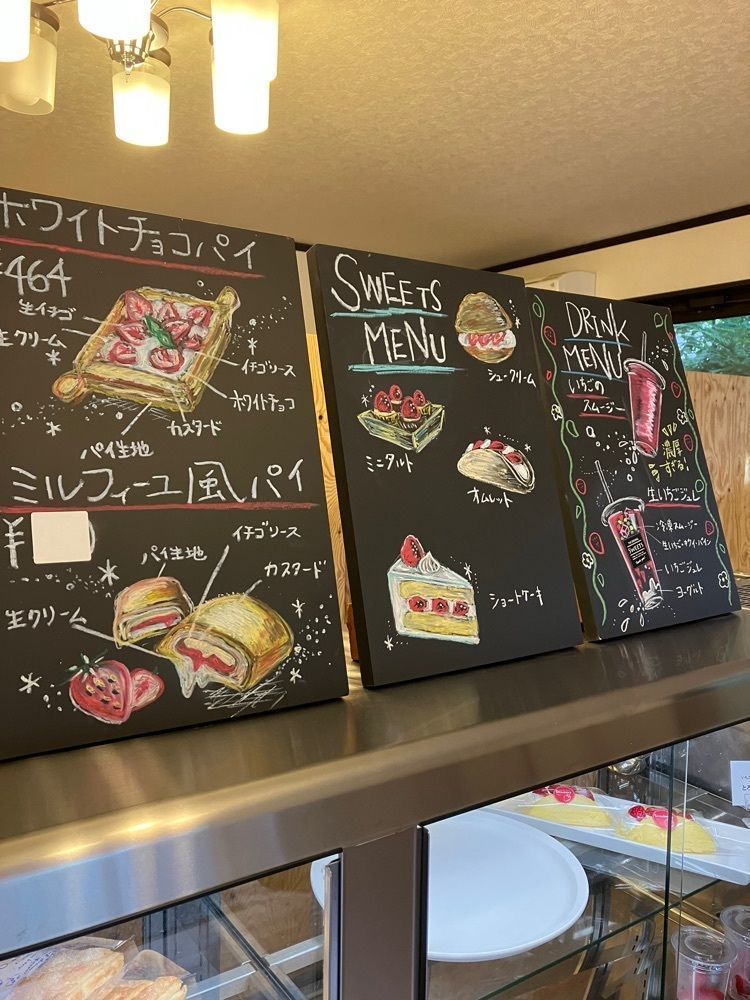 ホワイトチョコパイ
¥464
生イチゴ
生クリーム
イチゴソース
ホワイトチョコ
カスタード
パイ生地
ミルフィーユ風パイ
¥
イチゴソース
パイ生地
カスタード
生クリーム
SWEETS
MENU
シュークリーム
ミニタルト
オムレット
ショートケーキ
DRINK
MENU
いちごの
スムージー
濃厚
すぎる!
生いちごジュレ
冷凍スムージー
生いちご・キウイ・パイン
いちごジュレ
ヨーグルト